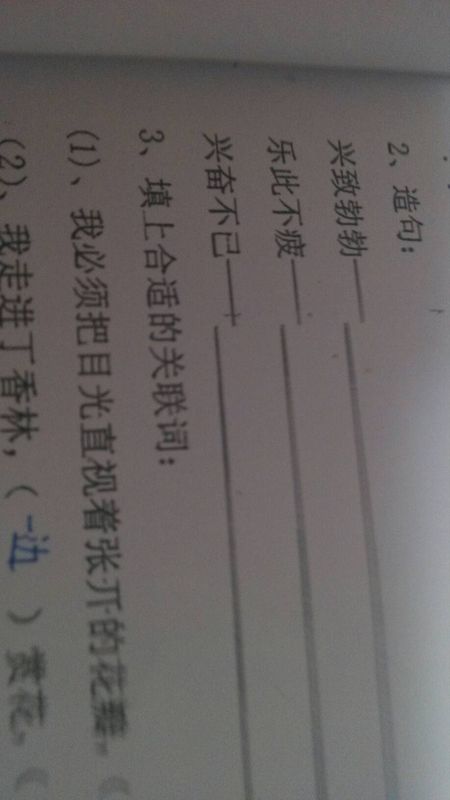 2、造句：
兴致勃勃——
乐此不疲——
兴奋不已——
3、填上合适的关联词：
(1)、我必须把目光直视着张开的花瓣，（
(2)、我走进丁香林，（一边）赏花，（